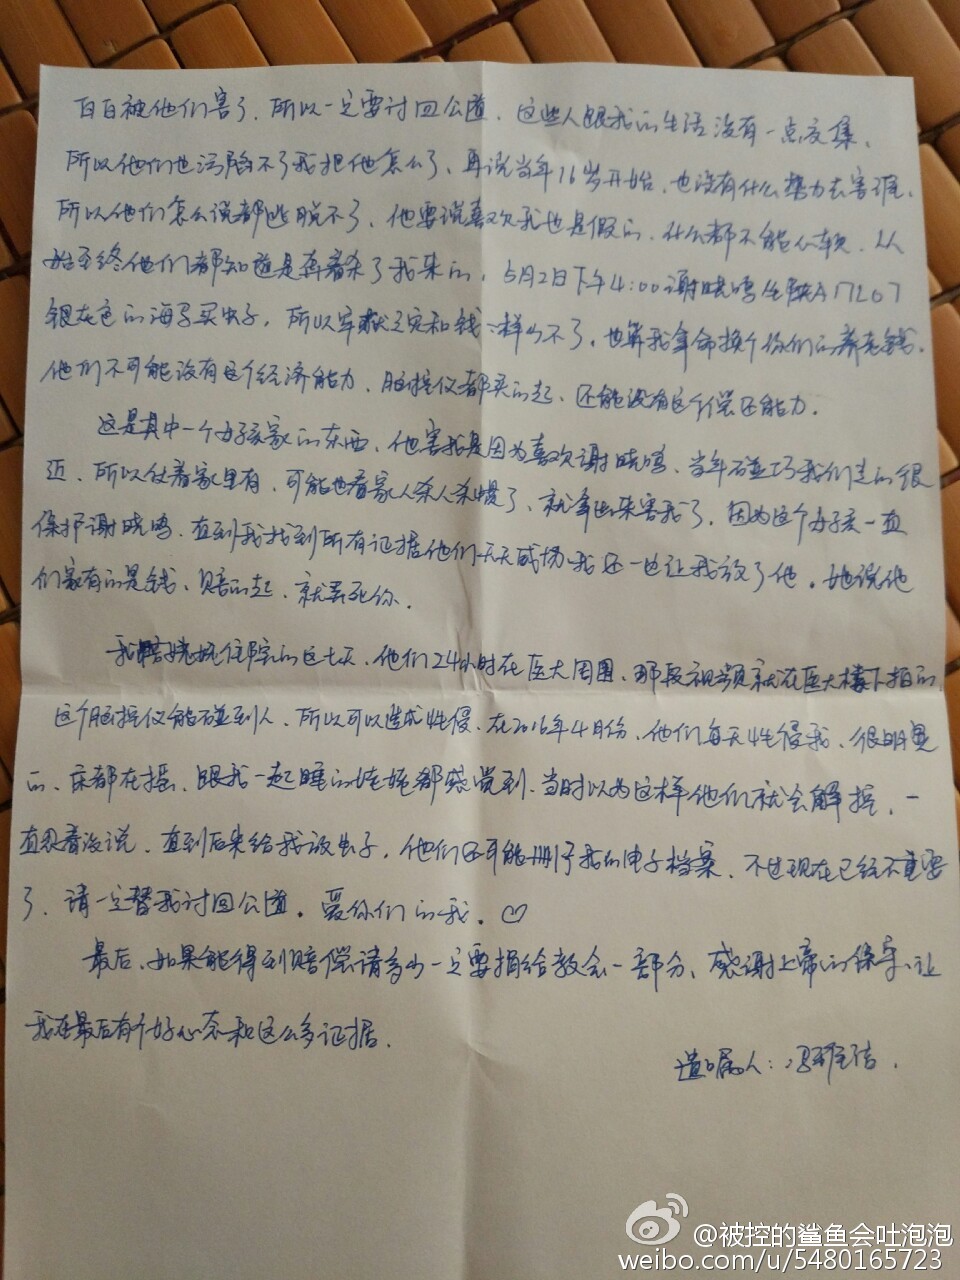 白白被他们害了，所以一定要讨回公道。这些人跟我的生活没有一点交集，
所以他们也污陷不了我把他怎么了，再说当年16岁开始，也没有什么势力去害谁，
所以他们怎么说都逃脱不了，他要说喜欢我也是假的，什么都不能心软，从
始至终他们都知道是奔着杀了我来的，5月2日下午4:00谢晓鸣坐陕A17L07
银灰色的海马买虫子，所以牢狱之灾和钱一样少不了，也算我拿命换个你们的养老钱。
他们不可能没有这个经济能力，脑控仪都买的起，还能没有这个偿还能力。
这是其中一个女孩家的东西，他害我是因为喜欢谢晓鸣，当年碰巧我们走的很
近，所以仗着家里有，可能也看家人杀人杀惯了，就拿出来害我了，因为这个女孩一直
保护谢晓鸣，直到我找到所有证据他们天天威协我还一也让我放了他。她说他
们家有的是钱，赔的起，就弄死你。
我陪姥姥住院的这七天，他们24小时在医大周围，那段视频就在医大楼下拍的，
这个脑控仪能碰到人，所以可以造成性侵，在2016年4月份，他们每天性侵我，很明显
的，床都在摇，跟我一起睡的姥姥都感觉到，当时以为这样他们就会解控，一
直忍着没说，直到后来给我放虫子，他们还可能删了我的电子档案，不过现在已经不重要
了，请一定替我讨回公道。爱你们的我。♡
最后，如果能得到赔偿请多少一定要捐给教会一部分，感谢上帝的保守，让
我在最后有个好心态和这么多证据。
遗嘱人：冯雅洁.
@被控的鲨鱼会吐泡泡
weibo.com/u/5480165723